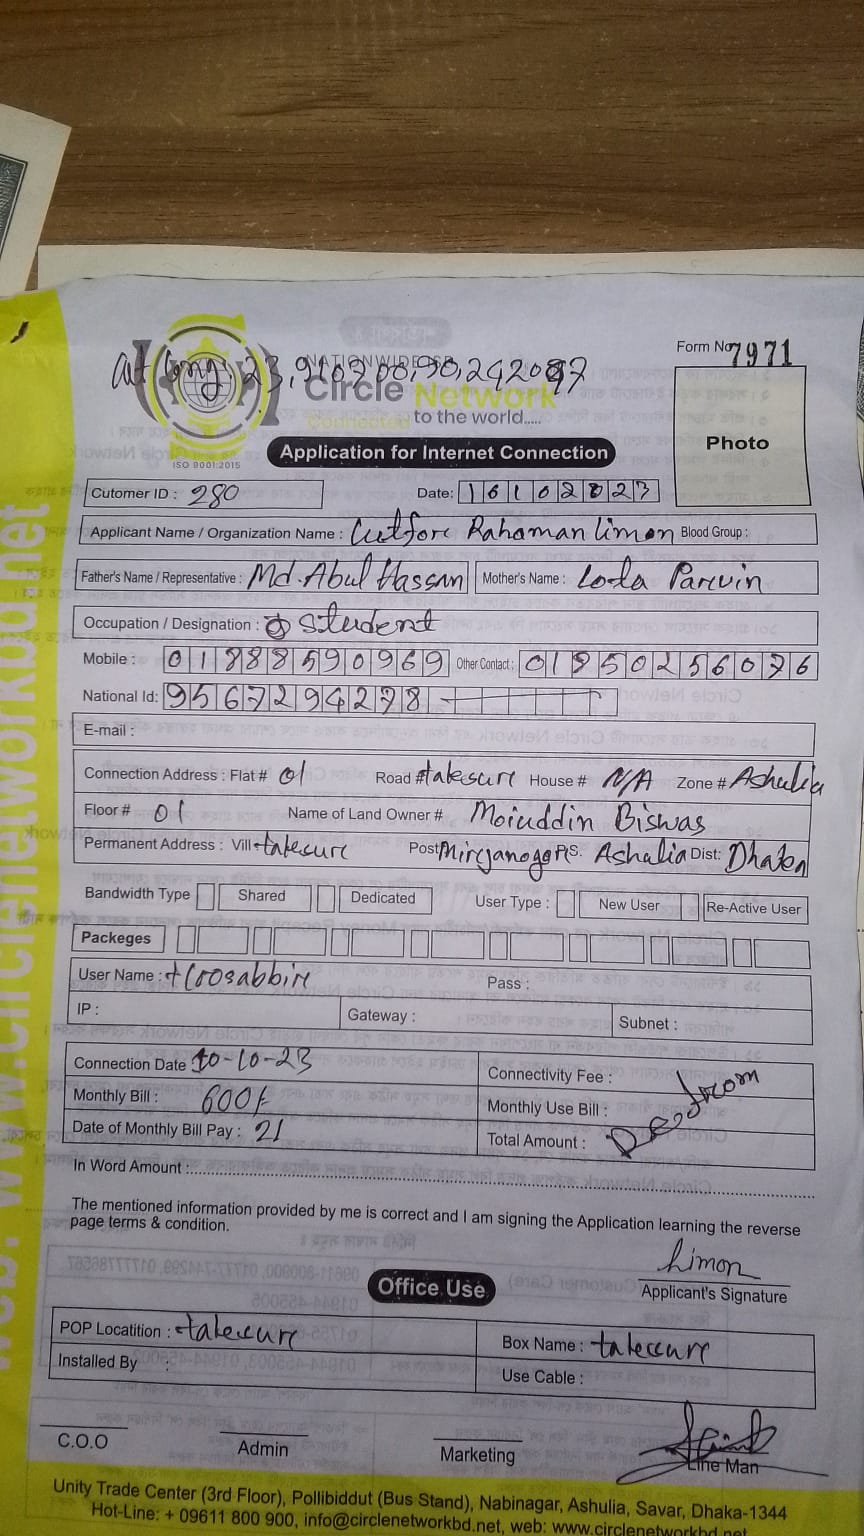 Form No 7971
at long: 23,910700,90,242087
NATIONWIDE
Circle Network
Connected to the world.....
ISO 9001:2015
Photo
Application for Internet Connection
Cutomer ID : 280 Date: 16102023
Applicant Name / Organization Name : Lutfor Rahaman limon Blood Group :
Father's Name / Representative : Md. Abul Hassan Mother's Name : Loda Parvin
Occupation / Designation : Student
Mobile : 01888590969 Other Contact : 01850256076
National Id: 9567294278
E-mail :
Connection Address : Flat # 01 Road # takesure House # N/A Zone # Ashulia
Floor # 01 Name of Land Owner # Moiuddin Biswas
Permanent Address : Vill takesure Post Mirjanogor P.S. Ashulia Dist: Dhaka
Bandwidth Type Shared Dedicated User Type : New User Re-Active User
Packeges
User Name : Pass :
IP : Gateway : Subnet :
Connection Date 10-10-23 Connectivity Fee :
Monthly Bill : 600/- Monthly Use Bill :
Date of Monthly Bill Pay : 21 Total Amount :
In Word Amount :
The mentioned information provided by me is correct and I am signing the Application learning the reverse
page terms & condition.
Limon
Applicant's Signature
Office Use
POP Locatition : takesure Box Name : takesure
Installed By : Use Cable :
C.O.O Admin Marketing Line Man
Unity Trade Center (3rd Floor), Pollibiddut (Bus Stand), Nabinagar, Ashulia, Savar, Dhaka-1344
Hot-Line: + 09611 800 900, info@circlenetworkbd.net, web: www.circlenetworkbd.net
web: www.circlenetworkbd.net